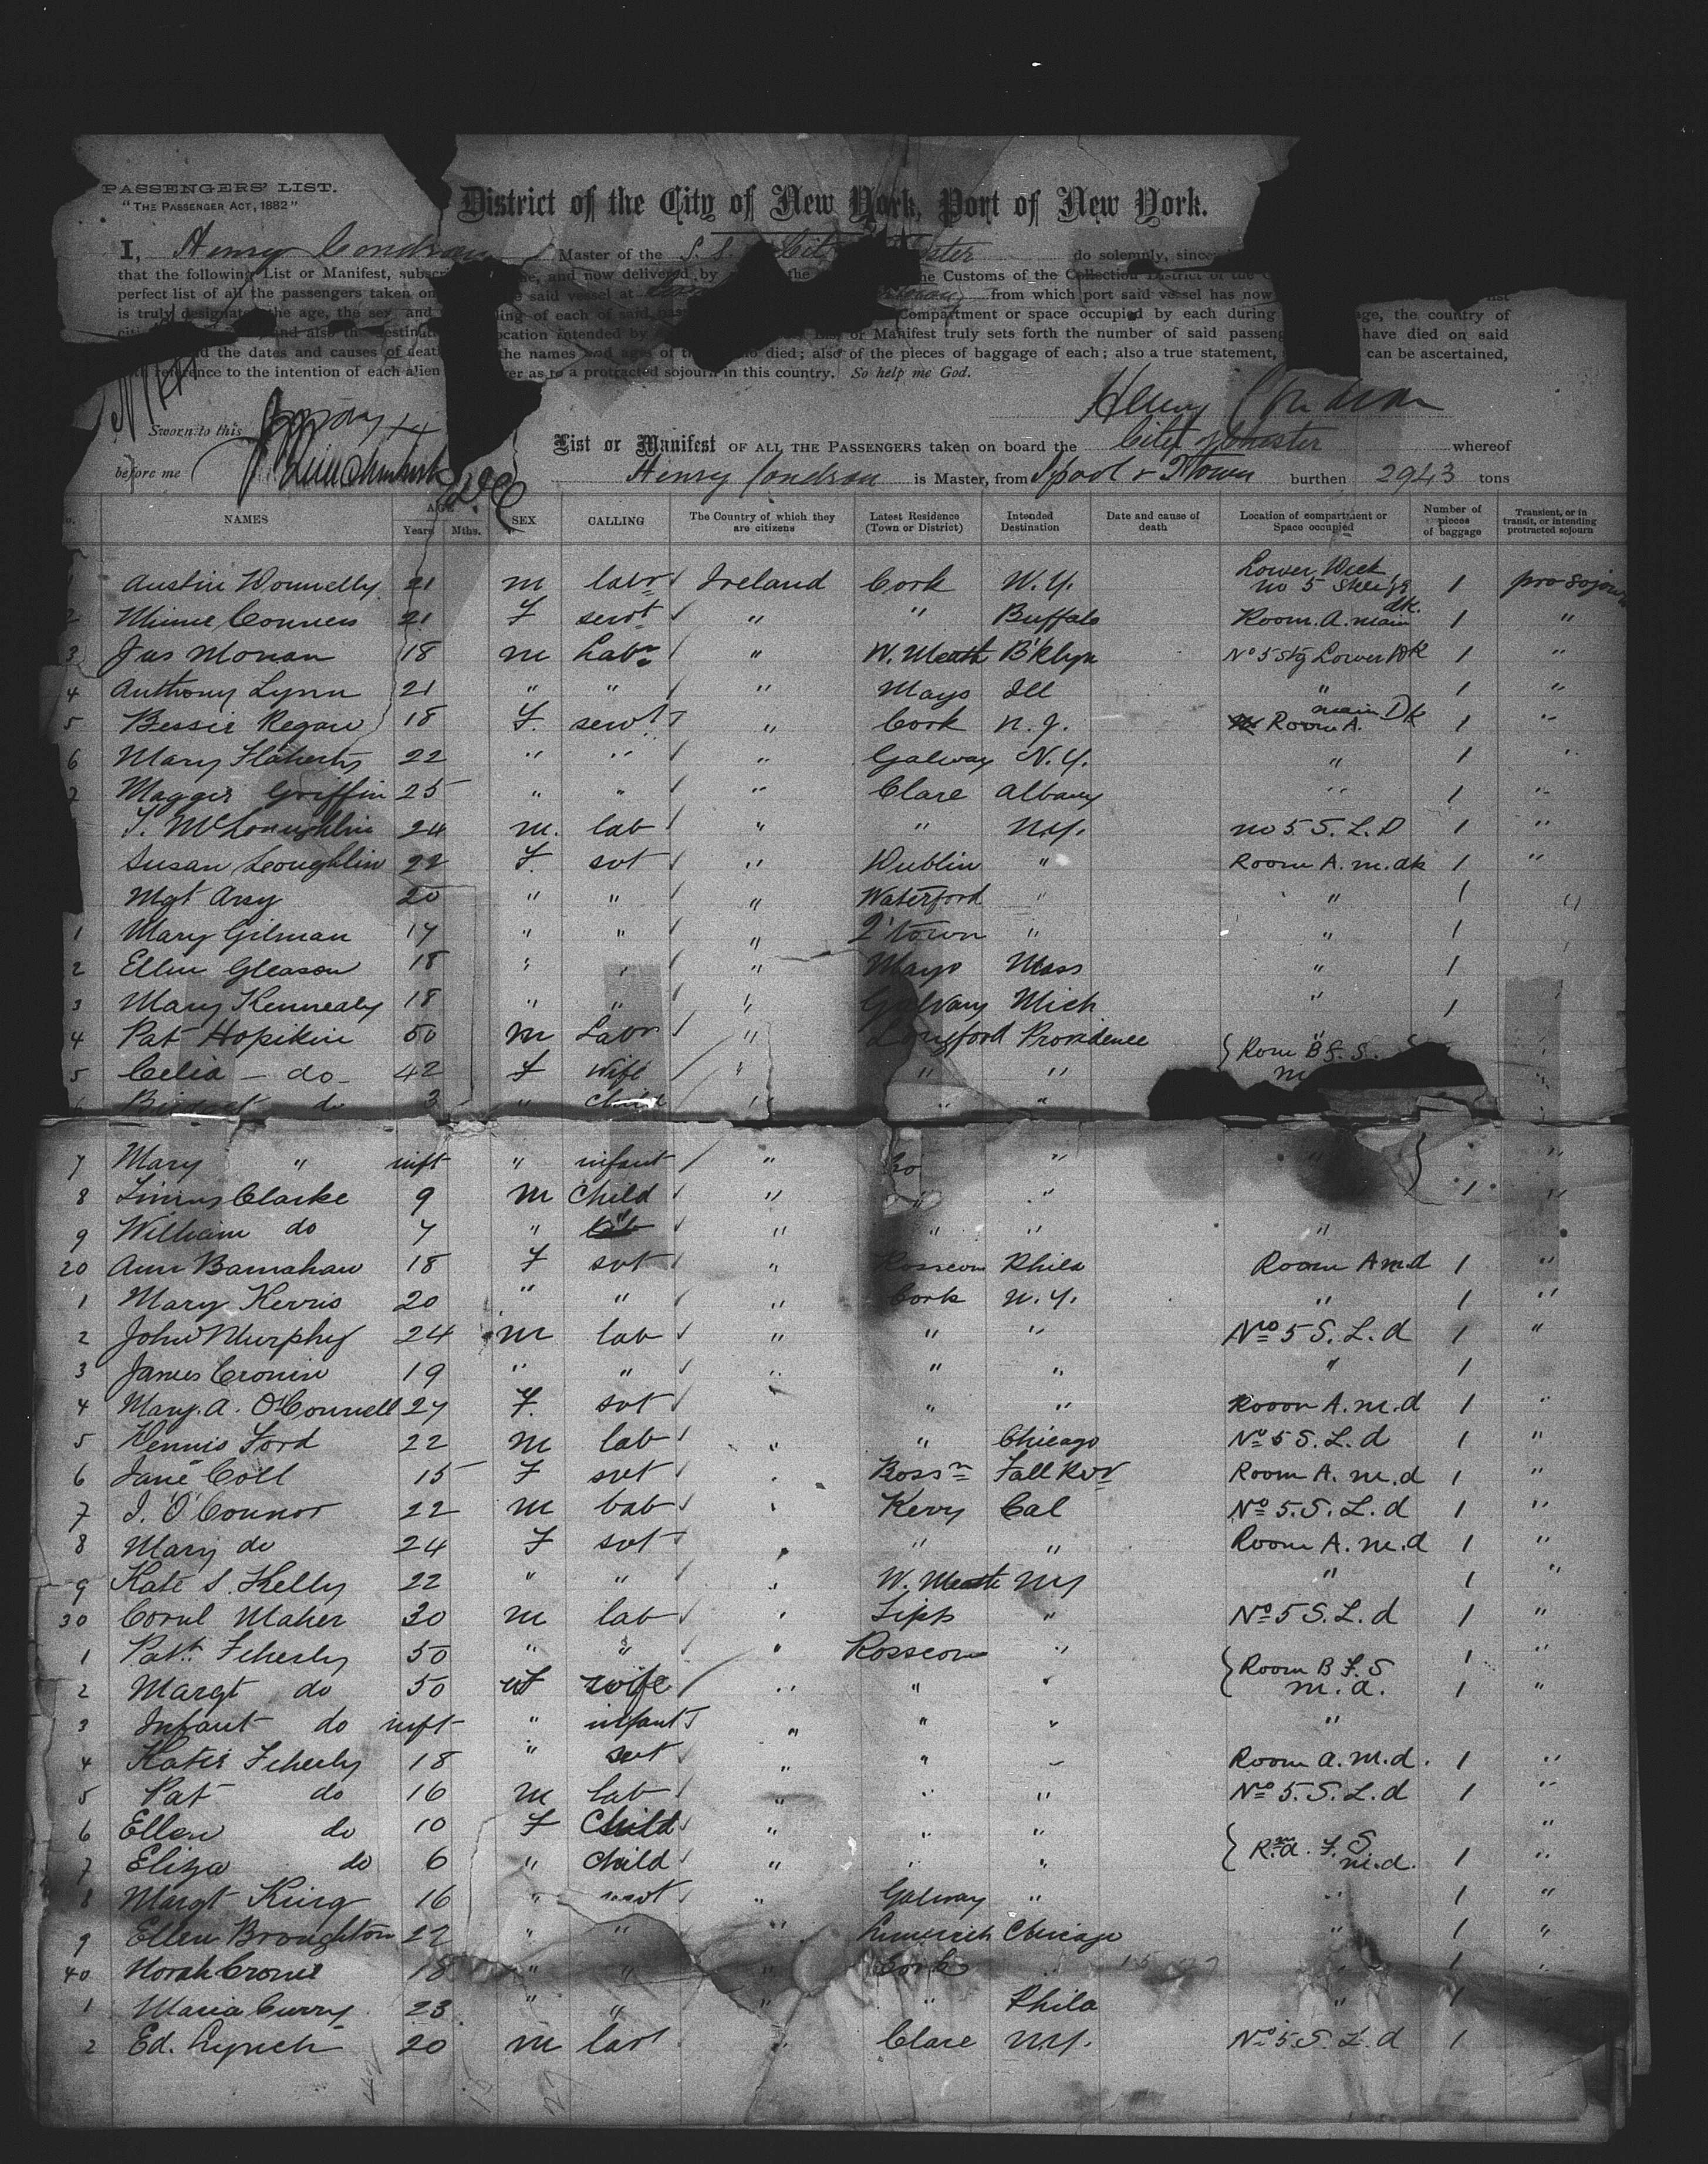 PASSENGERS' LIST.
"THE PASSENGER ACT, 1882"
District of the City of New York, Port of New York.
I, Henry Condron Master of the S. S. City ster do solemnly, since
that the following List or Manifest, subscr e, and now delivered by the he Customs of the Collection District of the C
perfect list of all the passengers taken on said vessel at from which port said vessel has now list
is truly designated the age, the sex and ling of each of said pas Compartment or space occupied by each during age, the country of
and also the destinat ocation intended by or Manifest truly sets forth the number of said passeng have died on said
d the dates and causes of deat the names and ages of th ho died; also of the pieces of baggage of each; also a true statement, can be ascertained,
reference to the intention of each alien er as to a protracted sojourn in this country. So help me God.
Henry Condron
Sworn to this
List or Manifest OF ALL THE PASSENGERS taken on board the City of Chester whereof
before me
Henry Condron is Master, from Lpool & Qtown burthen 2943 tons
No. NAMES AGE Years Mths. SEX CALLING The Country of which they are citizens Latest Residence (Town or District) Intended Destination Date and cause of death Location of compartment or Space occupied Number of pieces of baggage Transient, or in transit, or intending protracted sojourn
1 Austin Donnelly 21 m labr Ireland Cork N.Y. Lower Deck no 5 Steerg 1 pro sojourn
2 Minnie Conners 21 F servt " " Buffalo Room A. main dk. 1 "
3 Jas Monan 18 m Labr " W. Meath B'klyn No 5 Stg Lower Dk 1 "
4 Anthony Lynn 21 " " " Mayo Ill " 1 "
5 Bessie Regan 18 F. servt " Cork N.J. Room A. main Dk 1 "
6 Mary Flaherty 22 " " " Galway N.Y. " 1 "
7 Maggie Griffin 25 " " " Clare Albany " 1 "
T. McLoughlin 24 m. lab " " N.Y. no 5 S. L. D 1 "
Susan Loughlin 22 F. svt " Dublin " Room A. m. dk 1 "
Mgt Arsy 20 " " " Waterford " " 1 "
1 Mary Gilman 17 " " " Q'town " " 1
2 Ellen Gleason 18 " " " Mayo Mass " 1
3 Mary Kennealy 18 " " " Galway Mich " 1
4 Pat Hopikin 50 m Labr " Longford Providence " Rom B F. S.
5 Celia - do - 42 F Wife " " " m
6 do 3 " child " " "
7 Mary " inft " infant " do " "
8 Clarke 9 m Child " " " 1 "
9 William do 7 " " " " "
20 Ann Barnahan 18 F svt " Rosscom Phila Room A m.d 1 "
1 Mary Kerris 20 " " " Cork N.Y. " 1 "
2 John Murphy 24 m lab " " " No 5 S. L. d 1 "
3 James Cronin 19 " " " " " " 1
4 Mary. A. O'Connell 27 F. svt " " Room A. m. d 1 "
5 Dennis Ford 22 m lab " " Chicago No 5 S. L. d 1 "
6 Jane Coll 15 F svt Fall Rivr Room A. m. d 1 "
7 J. O'Connor 22 m lab Kery Cal No 5. S. L. d 1 "
8 Mary do 24 F svt " " Room A. m. d 1 "
9 Kate S. Kelly 22 " " W. Meath NY " 1 "
30 Cornl Maher 30 m lab Tipp " No 5 S. L. d 1 "
1 Patk Feherly 50 " " Rosscom " Room B F. S 1 "
2 Margt do 50 F wife " " m. d. 1 "
3 Infant do inft " infant " " " "
4 Katie Feherly 18 " svt " " Room A. m. d. 1 "
5 Pat do 16 m lab " " " No 5. S. L. d 1 "
6 Ellen do 10 F Child " " " "
7 Eliza do 6 " Child " " " F. S m. d. 1 "
8 Margt King 16 " svt " Galway " " 1 "
9 Ellen Broughton 22 " " " Limerick Chicago " 1 "
40 Norah Crone 18 " " " Cork " " 1 "
1 Maria Curry 23 " " " " Phila " 1
2 Ed. Lynch 20 m lab " Clare N.Y. No 5. S. L. d 1